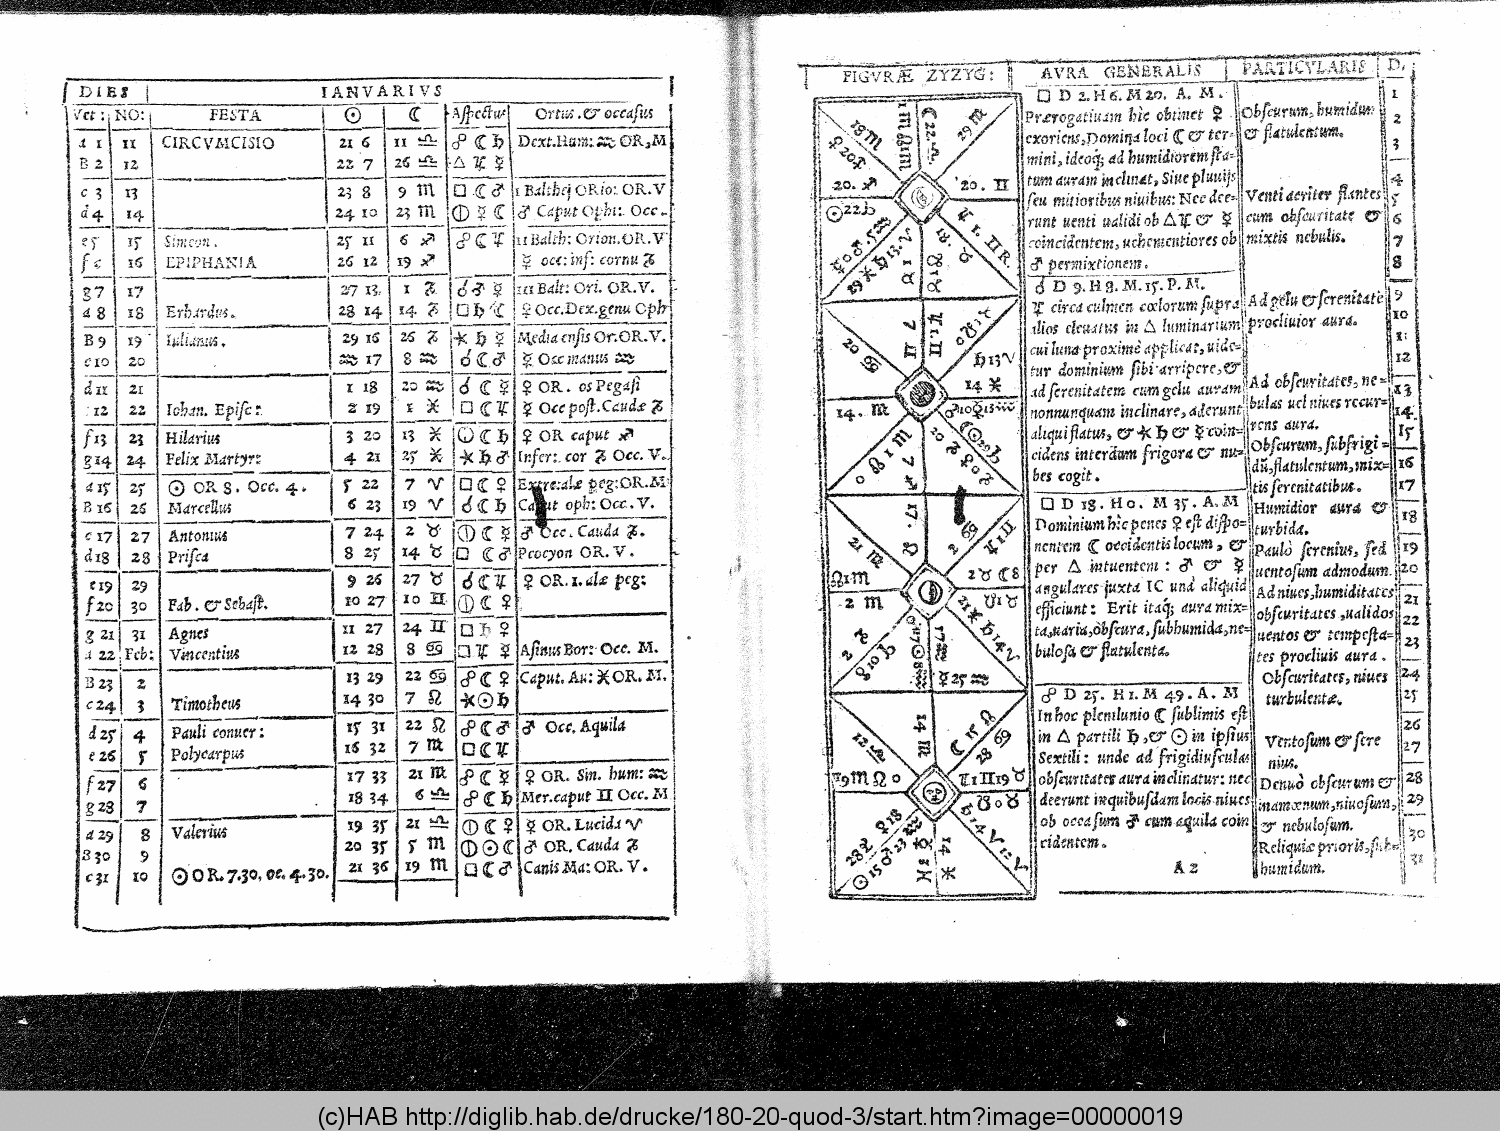 DIES | IANVARIVS
Vet: NO: FESTA ☉ ☾ Aſpectus Ortus. & occaſus
A 1 11 CIRCVMCISIO 21 6 11 ♎ ☍ ☾ ♄ Dext.Hum: ♒ OR,M
B 2 12 22 7 26 ♎ △ ♃ ☿
c 3 13 23 8 9 ♏ □ ☾ ♂ 1 Balthej ORio: OR.V
d 4 14 24 10 23 ♏ ☿ ☾ ♂ Caput Ophi:. Occ.
e 5 15 Simeon. 25 11 6 ♐ ☍ ☾ ♃ 11 Balth: Orion.OR.V
f 6 16 EPIPHANIA 26 12 19 ♐ ☿ occ: inf: cornu ♑
g 7 17 27 13 1 ♑ ☌ ♂ ☿ 111 Balt: Ori. OR.V.
A 8 18 Erhardus. 28 14 14 ♑ □ ♄ ☾ ♀ Occ.Dex.genu Oph
B 9 19 Iulianus. 29 16 26 ♑ ⚹ ♄ ☿ Media enſis Or.OR.V.
c 10 20 ♒ 17 8 ♒ ☌ ☾ ♂ ☿ Occ manus ♒
d 11 21 1 18 20 ♒ ☌ ☾ ☿ ♀ OR. os Pegaſi
12 22 Iohan. Epiſc: 2 19 1 ♓ □ ☾ ♃ ☿ Occ poſt.Caudæ ♑
f 13 23 Hilarius 3 20 13 ♓ ☾ ♄ ♀ OR caput ♐
g 14 24 Felix Martyr: 4 21 25 ♓ ⚹ ♄ ♂ Infer: cor ♑ Occ. V.
A 15 25 ☉ OR 8. Occ. 4. 5 22 7 ♈ □ ☾ ♀ Extre:alæ peg:OR.M
B 16 26 Marcellus 6 23 19 ♈ ☌ ☾ ♄ Caput oph: Occ. V.
c 17 27 Antonius 7 24 2 ♉ ☾ ☿ ♂ Occ. Cauda ♑.
d 18 28 Priſca 8 25 14 ♉ □ ☾ ♂ Procyon OR. V.
e 19 29 9 26 27 ♉ ☌ ☾ ♃ ♀ OR. 1. alæ peg:
f 20 30 Fab. & Sebaſt. 10 27 10 ♊ ☾ ♀
g 21 31 Agnes 11 27 24 ♊ □ ♄ ♀
A 22 Feb: Vincentius 12 28 8 ♋ □ ♃ ☿ Aſinus Bor: Occ. M.
B 23 2 13 29 22 ♋ ☍ ☾ ♀ Caput. An: ♓ OR. M.
c 24 3 Timotheus 14 30 7 ♌ ⚹ ☉ ♄
d 25 4 Pauli conuer: 15 31 22 ♌ ☍ ☾ ♂ ♂ Occ. Aquila
e 26 5 Polycarpus 16 32 7 ♍ □ ☾ ♃
f 27 6 17 33 21 ♍ ☍ ☾ ☿ ♀ OR. Sin. hum: ♒
g 28 7 18 34 6 ♎ ☍ ☾ ♄ Mer.caput ♊ Occ. M
A 29 8 Valerius 19 35 21 ♎ ☾ ♀ ☿ OR. Lucida ♈
B 30 9 20 35 5 ♏ ☉ ☾ ♂ OR. Cauda ♑
c 31 10 ☉ OR. 7.30. oc. 4.30. 21 36 19 ♏ □ ☾ ♂ Canis Ma: OR. V.
FIGVRÆ ZYZYG: | AVRA GENERALIS | PARTICVLARIS | D.
□ D 2. H 6. M 20. A. M.
Prærogatiuam hîc obtinet ♀
exoriens, Domina loci ☾ & ter-
mini, ideoq; ad humidiorem ſta-
tum auram inclinat, Siue pluuijs
ſeu mitioribus niuibus: Nec dee-
runt uenti ualidi ob △ ♃ & ☿
coincidentem, uehementiores ob
♂ permixtionem.
☌ D 9. H 8. M. 15. P. M.
♃ circa culmen cœlorum ſupra
alios eleuatus in △ luminarium
cui luna proximè applicat, uide-
tur dominium ſibi arripere, &
ad ſerenitatem cum gelu auram
nonnunquam inclinare, aderunt
aliqui flatus, & ⚹ ♄ & ☿ coin-
cidens interdum frigora & nu-
bes cogit.
□ D 18. H 0. M 35. A. M
Dominium hîc penes ♀ eſt diſpo=
nentem ☾ occidentis locum, &
per △ intuentem: ♂ & ☿
angulares juxta IC und aliquid
efficiunt: Erit itaq; aura mix=
ta, uaria, obſcura, ſubhumida, ne=
buloſa & flatulenta.
☍ D 25. H 1. M 49. A. M
In hoc plenilunio ☾ ſublimis eſt
in △ partili ♄, & ☉ in ipſius
Sextili: unde ad frigidiuſculas
obſcuritates aura inclinatur: nec
deerunt in quibuſdam locis niues
ob occaſum ♂ cum aquila coin
cidentem.
A 2
Obſcurum, humidum
& flatulentum.
Venti acriter flantes
cum obſcuritate &
mixtis nebulis.
Ad gelu & ſerenitatē
procliuior aura.
Ad obſcuritates, ne=
bulas uel niues recur=
rens aura.
Obſcurum, ſubfrigi=
dū, flatulentum, mix=
tis ſerenitatibus.
Humidior aura &
turbida.
Paulò ſerenius, ſed
uentoſum admodum.
Ad niues, humiditates
obſcuritates, ualidos
uentos & tempeſta=
tes procliuis aura.
Obſcuritates, niues
turbulentæ.
Ventoſum & ferè
nius.
Denuò obſcurum &
inamœnum, niuoſum,
& nebuloſum.
Reliquiæ prioris, ſub=
humidum.
1
2
3
4
5
6
7
8
9
10
11
12
13
14
15
16
17
18
19
20
21
22
23
24
25
26
27
28
29
30
31
(c)HAB http://diglib.hab.de/drucke/180-20-quod-3/start.htm?image=00000019